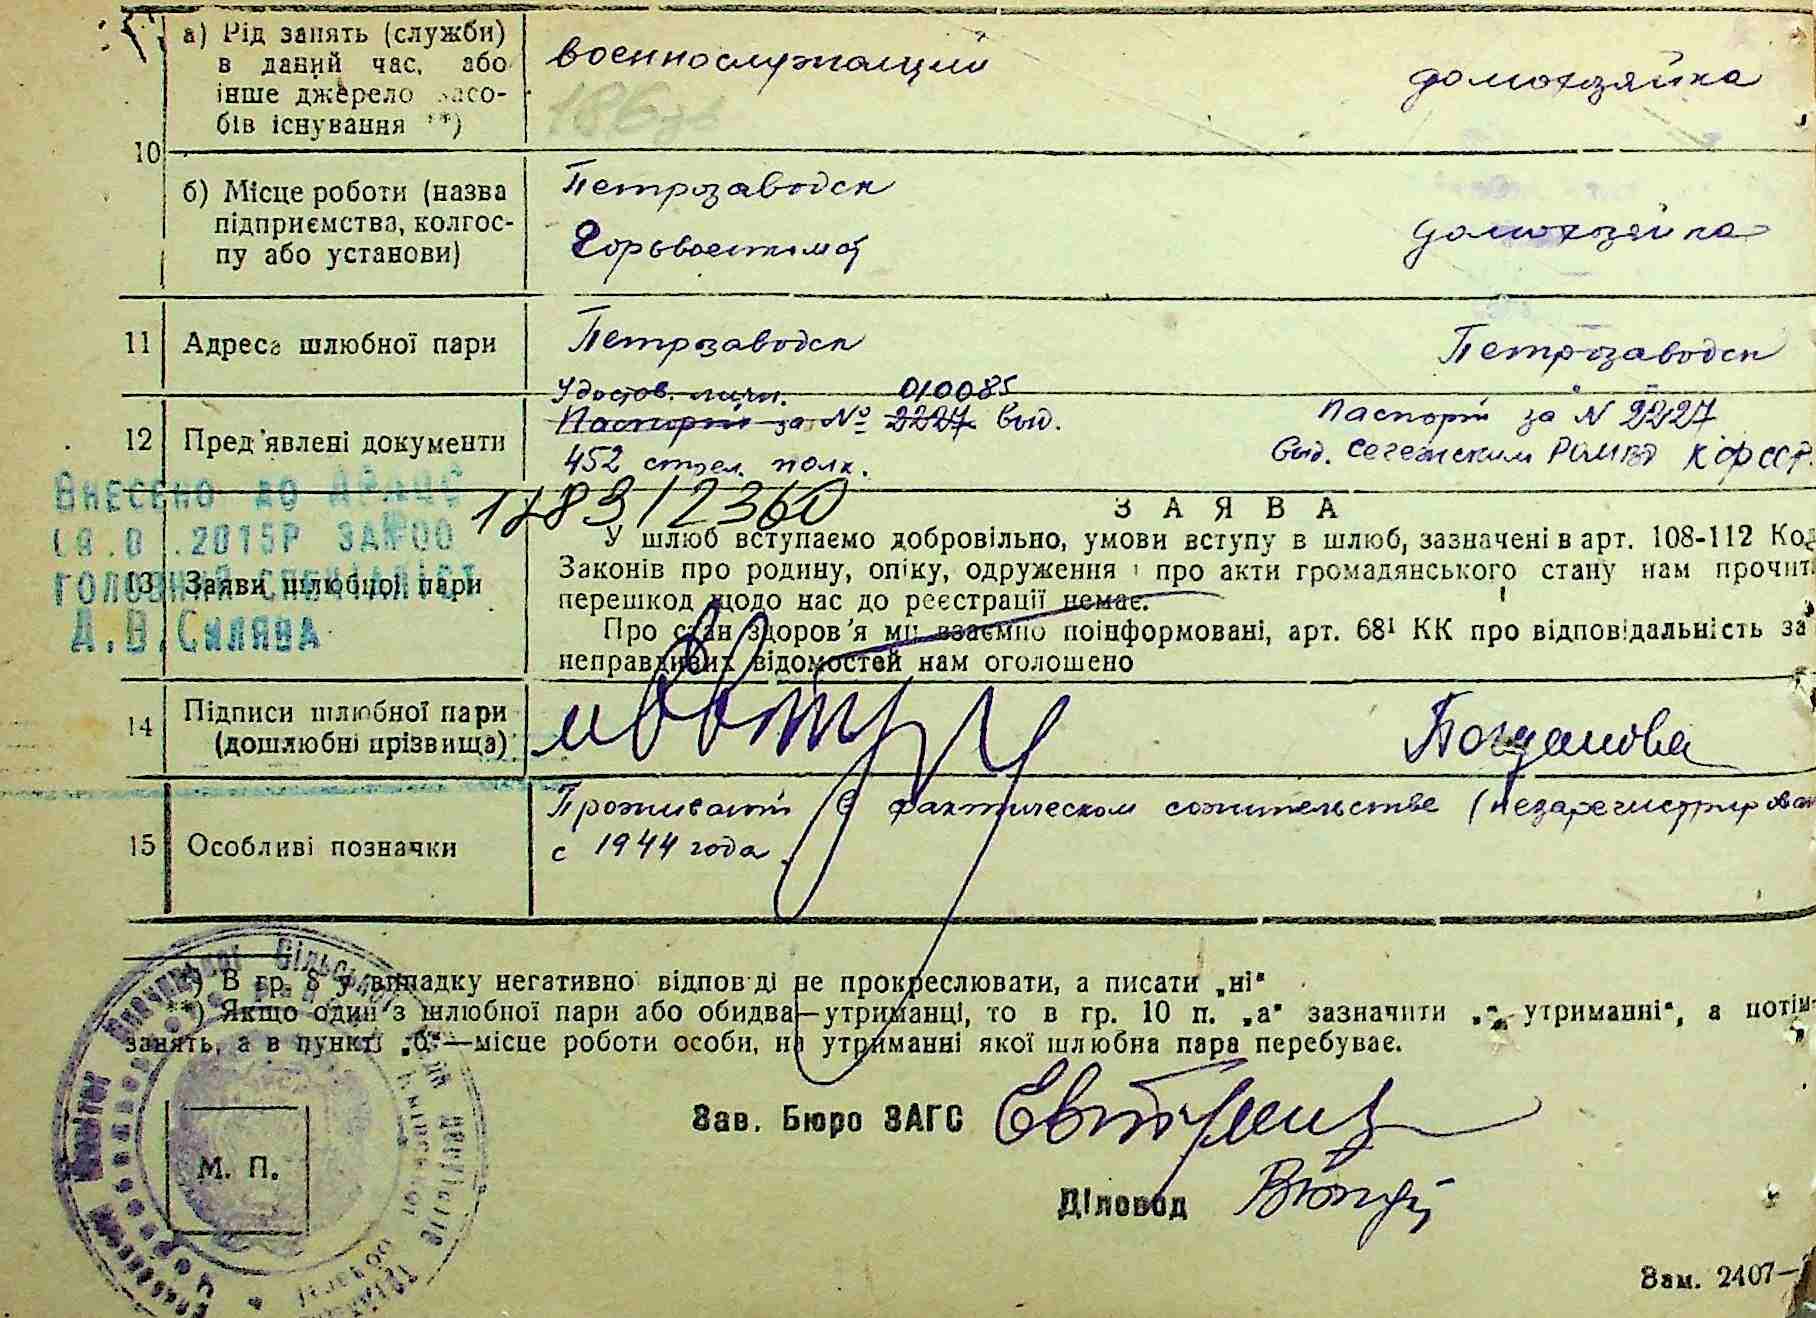 а) Рід занять (служби)
в даний час, або
інше джерело засо-
бів існування **)
военнослужащий
домохзяйка
10
б) Місце роботи (назва
підприємства, колгос-
пу або установи)
Петрозаводск
Горвоенкомат
домохзяйка
11 Адреса шлюбної пари
Петрозаводск
Петрозаводск
12 Пред'явлені документи
Удостов. личн. 010085
Паспорт за № 2227 выд.
452 стрел. полк.
Паспорт за N 2227
выд. Сегежским РОМВД КФССР.
Внесено до ДРАЦС
.2015р зА №00
головний спеціаліст
Д.В.Силява
1783/2360
13 Заяви шлюбної пари
ЗАЯВА
У шлюб вступаємо добровільно, умови вступу в шлюб, зазначені в арт. 108-112 Ко
Законів про родину, опіку, одруження і про акти громадянського стану нам прочит
перешкод щодо нас до реєстрації немає.
Про стан здоров'я ми взаємно поінформовані, арт. 68¹ КК про відповідальність за
неправдивих відомостей нам оголошено
14 Підписи шлюбної пари
(дошлюбні прізвища)
Богданова
15 Особливі позначки
Проживают в фактическом сожительстве (незарегистрирован
с 1944 года.
*) В гр. 8 у випадку негативно відповіді не прокреслювати, а писати „ні“
**) Якщо один з шлюбної пари або обидва—утриманці, то в гр. 10 п. „а“ зазначити „на утриманні“, а потім
занять, а в пункті „б“—місце роботи особи, на утриманні якої шлюбна пара перебуває.
М. П.
Зав. Бюро ЗАГС
Діловод
Зам. 2407—